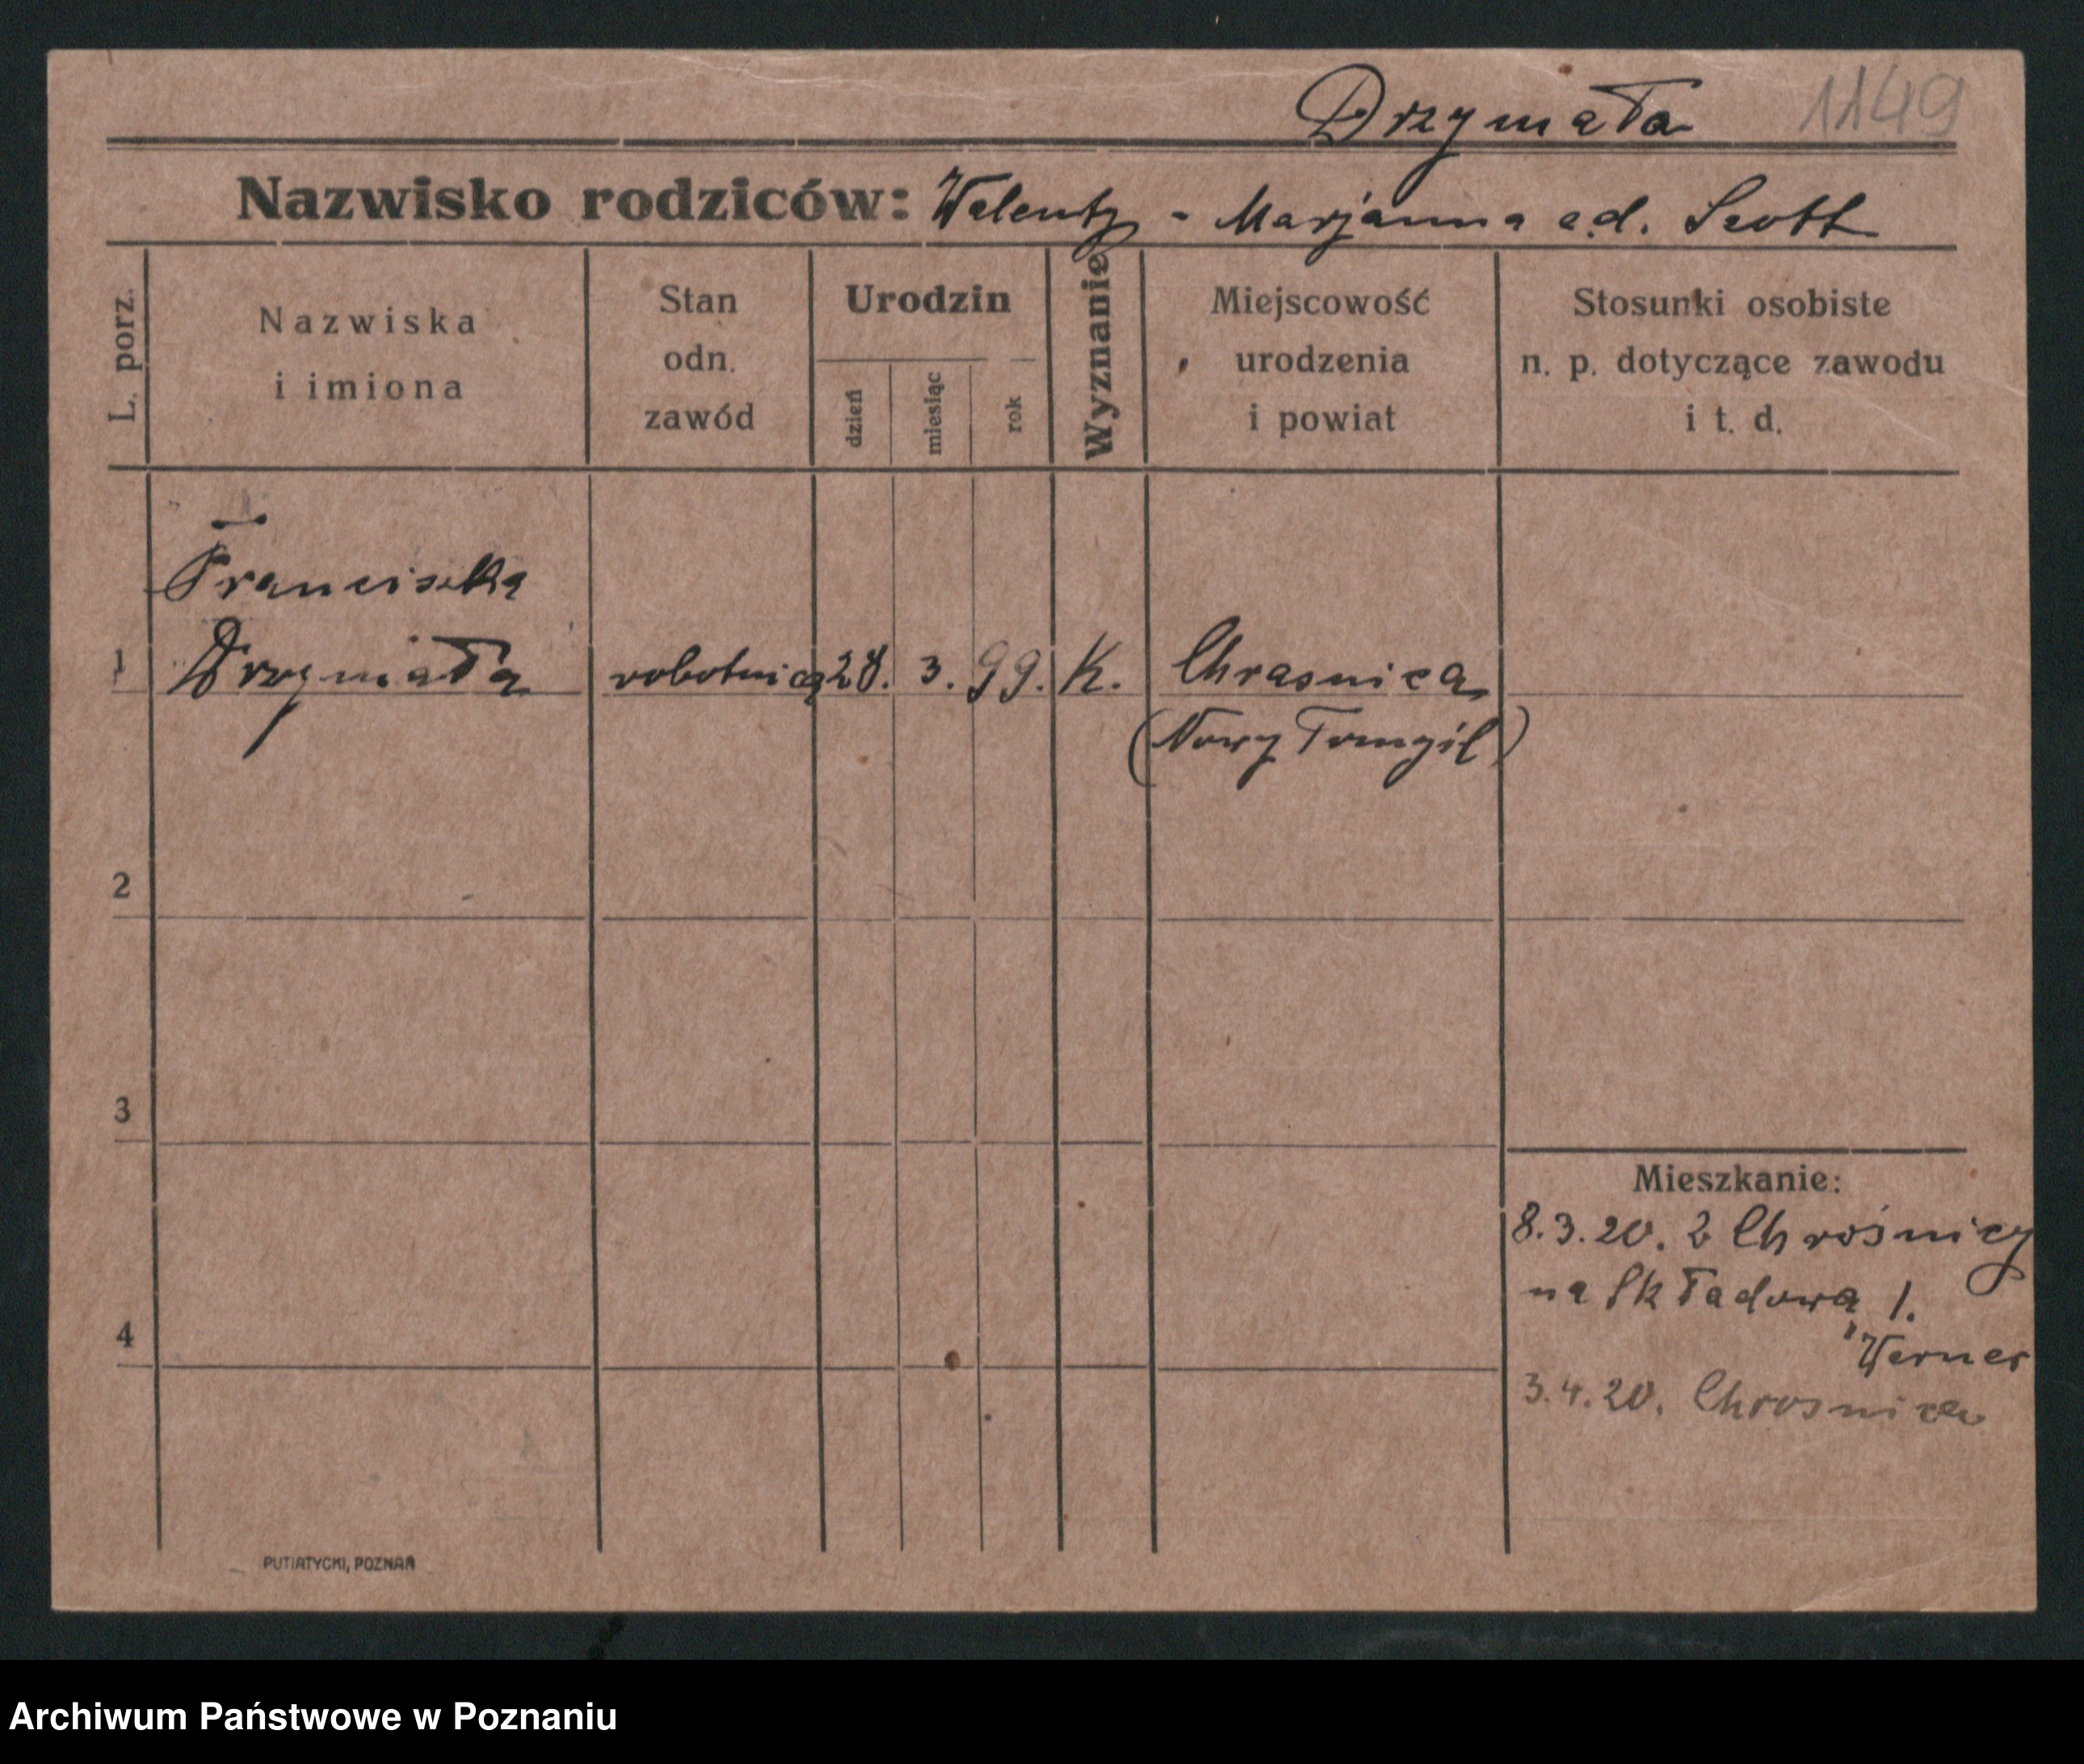 Drzymała 1149
Nazwisko rodziców: Walenty - Marjanna e.d. Szott
L. porz.
Nazwiska
i imiona
Stan
odn.
zawód
Urodzin
dzień
miesiąc
rok
Wyznanie
Miejscowość
urodzenia
i powiat
Stosunki osobiste
n. p. dotyczące zawodu
i t. d.
Franciszka
1 Drzymała robotnica 28. 3. 99. K. Chrosnica
(Nowy Tomyśl)
2
3
Mieszkanie:
8.3.20. z Chrośnicy
na Składową 1.
4
Werner
3.4.20. Chrosnica
PUTIATYCKI, POZNAŃ
Archiwum Państwowe w Poznaniu